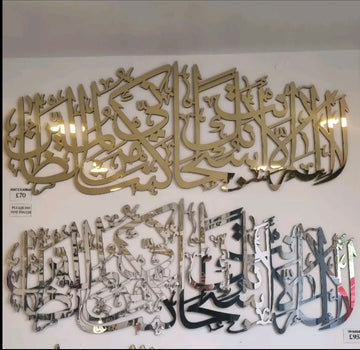 لا اله الا انت سبحانك اني كنت من الظالمين
£70
لا اله الا انت سبحانك اني كنت من الظالمين
£95